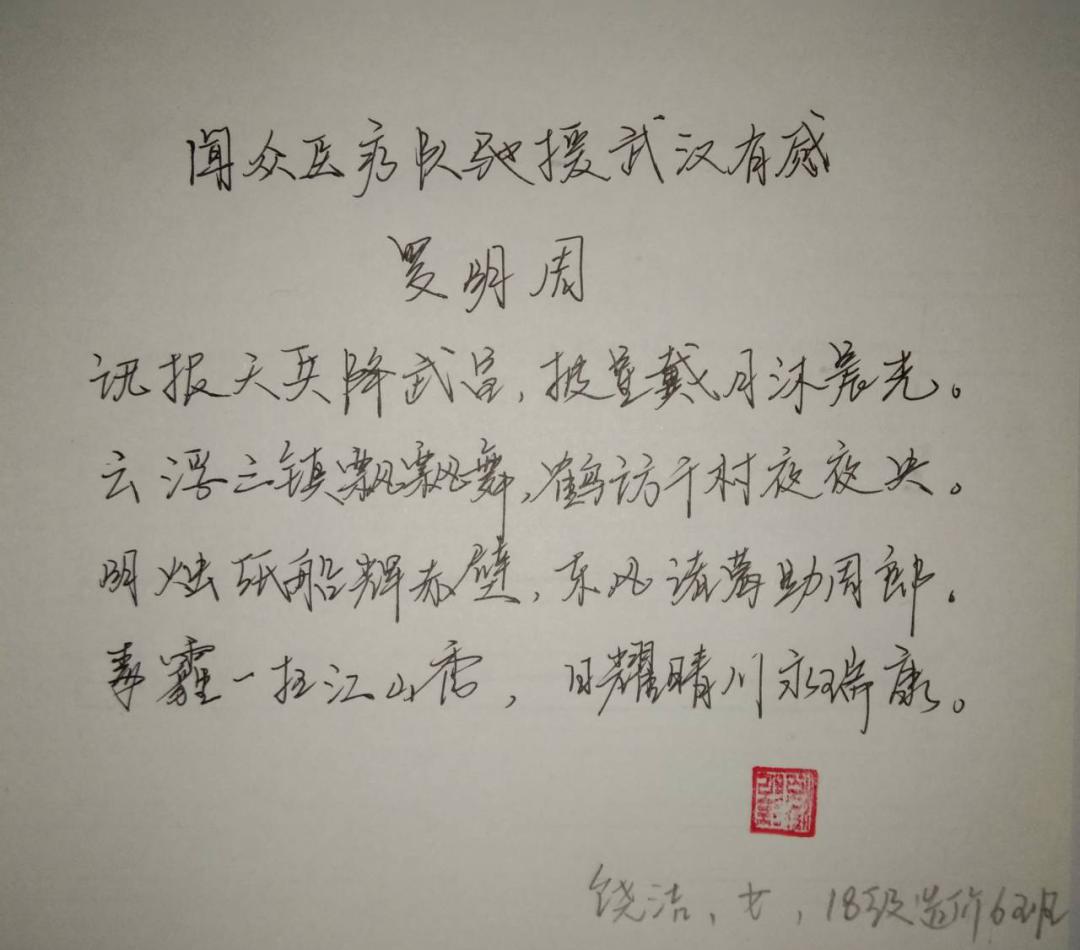 闻众医疗队驰援武汉有感
罗明周
讯报天兵降武昌，披星戴月沐晨光。
云浮三镇飘飘舞，鹤访千村夜夜央。
明烛纸船辉赤壁，东风诸葛助周郎。
毒霾一扫江山秀，日耀晴川永瑞康。
饶洁，女，18级造价6班